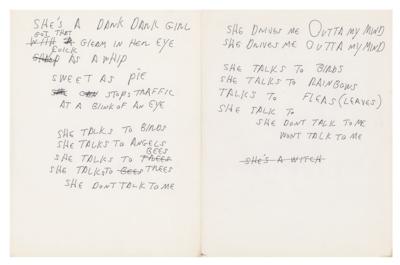 SHE'S A DANK DANK GIRL
GOT THAT
WITH A GLEAM IN HER EYE
QUICK
SHARP AS A WHIP
SWEET AS PIE
SHE CAN STOPS TRAFFIC
AT A BLINK OF AN EYE
SHE TALKS TO BIRDS
SHE TALKS TO ANGELS
BEES
SHE TALKS TO TREES
SHE TALKS TO BEES TREES
SHE DONT TALK TO ME
SHE DRIVES ME OUTTA MY MIND
SHE DRIVES ME OUTTA MY MIND
SHE TALKS TO BIRDS
SHE TALKS TO RAINBOWS
TALKS TO FLEAS (LEAVES)
SHE TALK TO
SHE DONT TALK TO ME
WONT TALK TO ME
SHE'S A WITCH